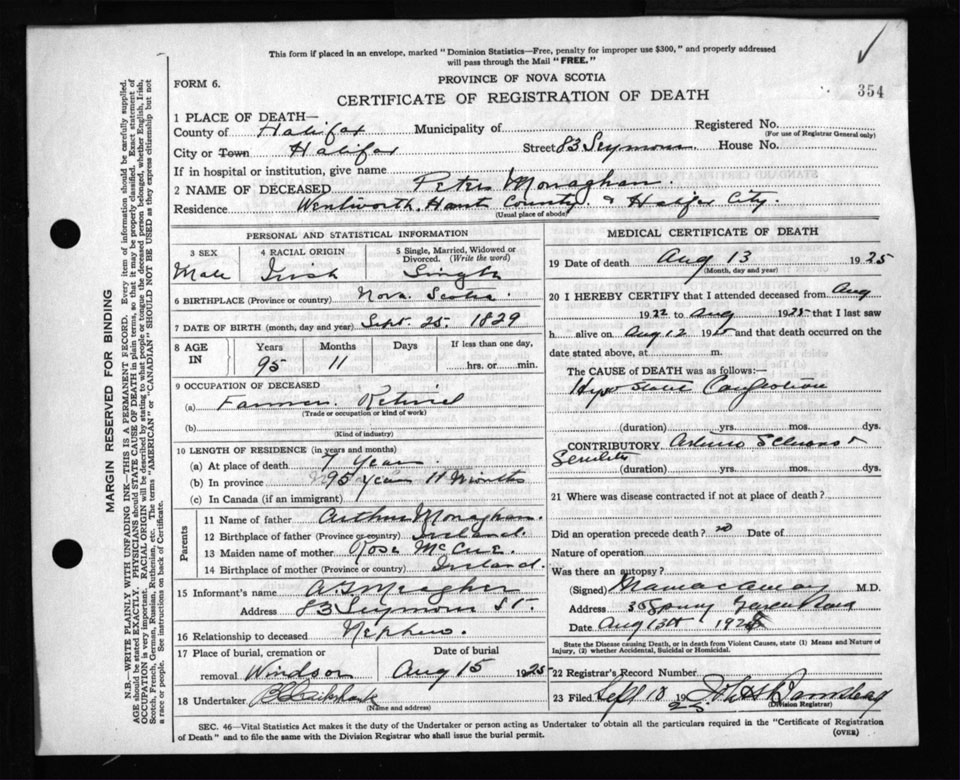 This form if placed in an envelope, marked "Dominion Statistics—Free, penalty for improper use $300," and properly addressed
will pass through the Mail "FREE."
FORM 6.
PROVINCE OF NOVA SCOTIA
CERTIFICATE OF REGISTRATION OF DEATH
354
1 PLACE OF DEATH—
County of Halifax Municipality of Registered No.
(For use of Registrar General only)
City or Town Halifax Street 83 Seymour House No.
If in hospital or institution, give name
2 NAME OF DECEASED Peter Monaghan.
Residence Wentworth, Hants County. & Halifax City.
(Usual place of abode)
PERSONAL AND STATISTICAL INFORMATION
3 SEX
Male
4 RACIAL ORIGIN
Irish
5 Single, Married, Widowed or
Divorced. (Write the word)
Single
6 BIRTHPLACE (Province or country) Nova Scotia
7 DATE OF BIRTH (month, day and year) Sept. 25. 1829
8 AGE IN
Years
95
Months
11
Days
If less than one day,
hrs. or min.
9 OCCUPATION OF DECEASED
(a) Farmer. Retired
(Trade or occupation or kind of work)
(b)
(Kind of industry)
10 LENGTH OF RESIDENCE (in years and months)
(a) At place of death 7 Years
(b) In province 95 Years 11 Months
(c) In Canada (if an immigrant)
Parents
11 Name of father Arthur Monaghan.
12 Birthplace of father (Province or country) Ireland.
13 Maiden name of mother Rose McCue.
14 Birthplace of mother (Province or country) Ireland.
15 Informant's name
Address 83 Seymour St.
16 Relationship to deceased Nephew.
17 Place of burial, cremation or Date of burial
removal Windsor Aug 15 1925
18 Undertaker
(Name and address)
MEDICAL CERTIFICATE OF DEATH
19 Date of death Aug 13 1925
(Month, day and year)
20 I HEREBY CERTIFY that I attended deceased from Aug
1922 to Aug 1925 that I last saw
h alive on Aug 12 1925 and that death occurred on the
date stated above, at m.
The CAUSE OF DEATH was as follows:
Hypostatic Congestion
(duration) yrs. mos. dys.
CONTRIBUTORY Arterio Scleroses &
Senility
(duration) yrs. mos. dys.
21 Where was disease contracted if not at place of death?
Did an operation precede death? no Date of
Nature of operation
Was there an autopsy?
(Signed) M.D.
Address Spring Garden Road
Date Aug 13th 1925
State the Disease causing Death, or in death from Violent Causes, state (1) Means and Nature of
Injury, (2) whether Accidental, Suicidal or Homicidal.
22 Registrar's Record Number
23 Filed Sept 10 1925
(Division Registrar)
SEC. 46—Vital Statistics Act makes it the duty of the Undertaker or person acting as Undertaker to obtain all the particulars required in the "Certificate of Registration
of Death" and to file the same with the Division Registrar who shall issue the burial permit.
(OVER)
MARGIN RESERVED FOR BINDING
N.B.—WRITE PLAINLY WITH UNFADING INK—THIS IS A PERMANENT RECORD. Every item of information should be carefully supplied.
AGE should be stated EXACTLY. PHYSICIANS should STATE CAUSE OF DEATH in plain terms, so that it may be properly classified. Exact statement of
OCCUPATION is very important. RACIAL ORIGIN will be described by stating to what people or tongue the deceased person belonged, whether English, Irish,
Scotch, French, German, Russian, Ruthenian, etc. The terms "AMERICAN" or "CANADIAN" SHOULD NOT BE USED as they express citizenship but not
a race or people. See instructions on back of Certificate.